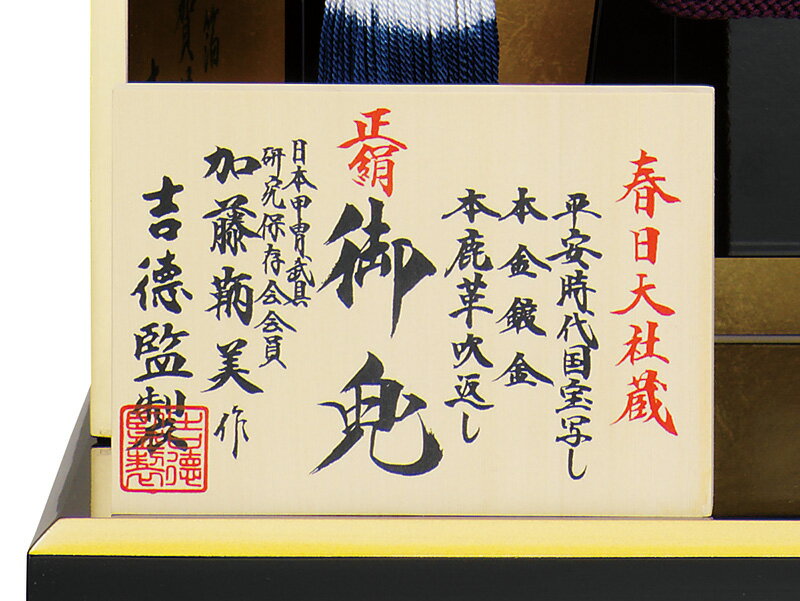 春日大社蔵
平安時代国宝写し
本金鍍金
本鹿革吹返し
正絹
御兜
日本甲冑武具
研究保存会会員
加藤鞆美作
吉德監製
吉德
監製